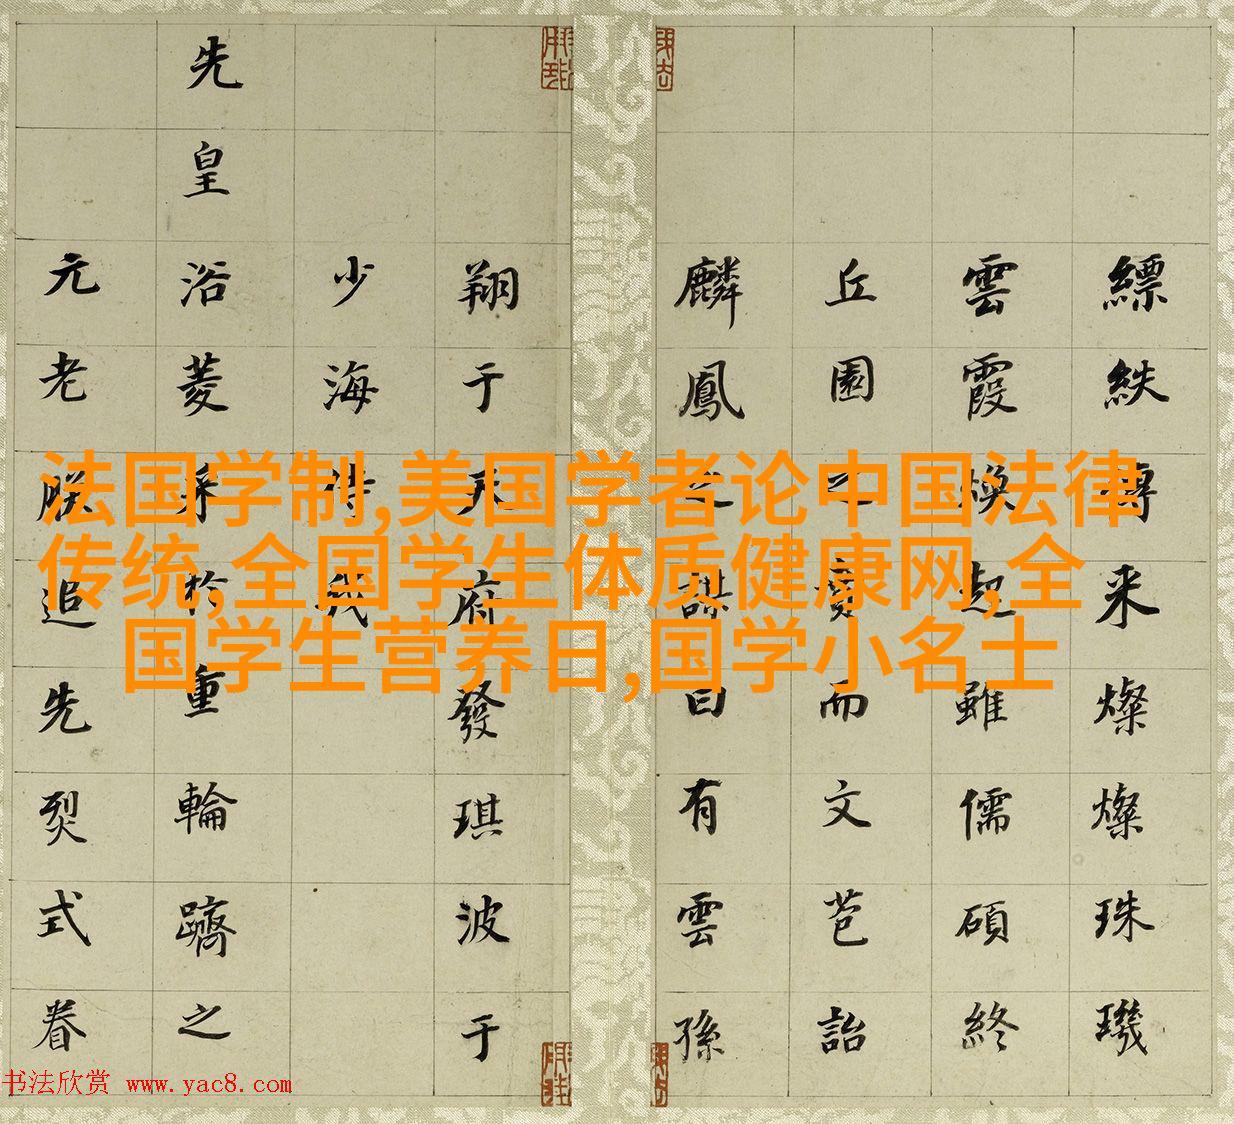 縹紩来燦燦珠璣
雲霞煥起雖儒碩終
丘園之賁而文苞詒
麟鳳之謀曰有雲孫
翔于天府發琪波于
少海待我
先皇浴菱采於重輪躋之
元老朕追先烈式眷
法国学制,美国学者论中国法律
传统,全国学生体质健康网,全
国学生营养日,国学小名士
书法欣赏 www.yac8.com